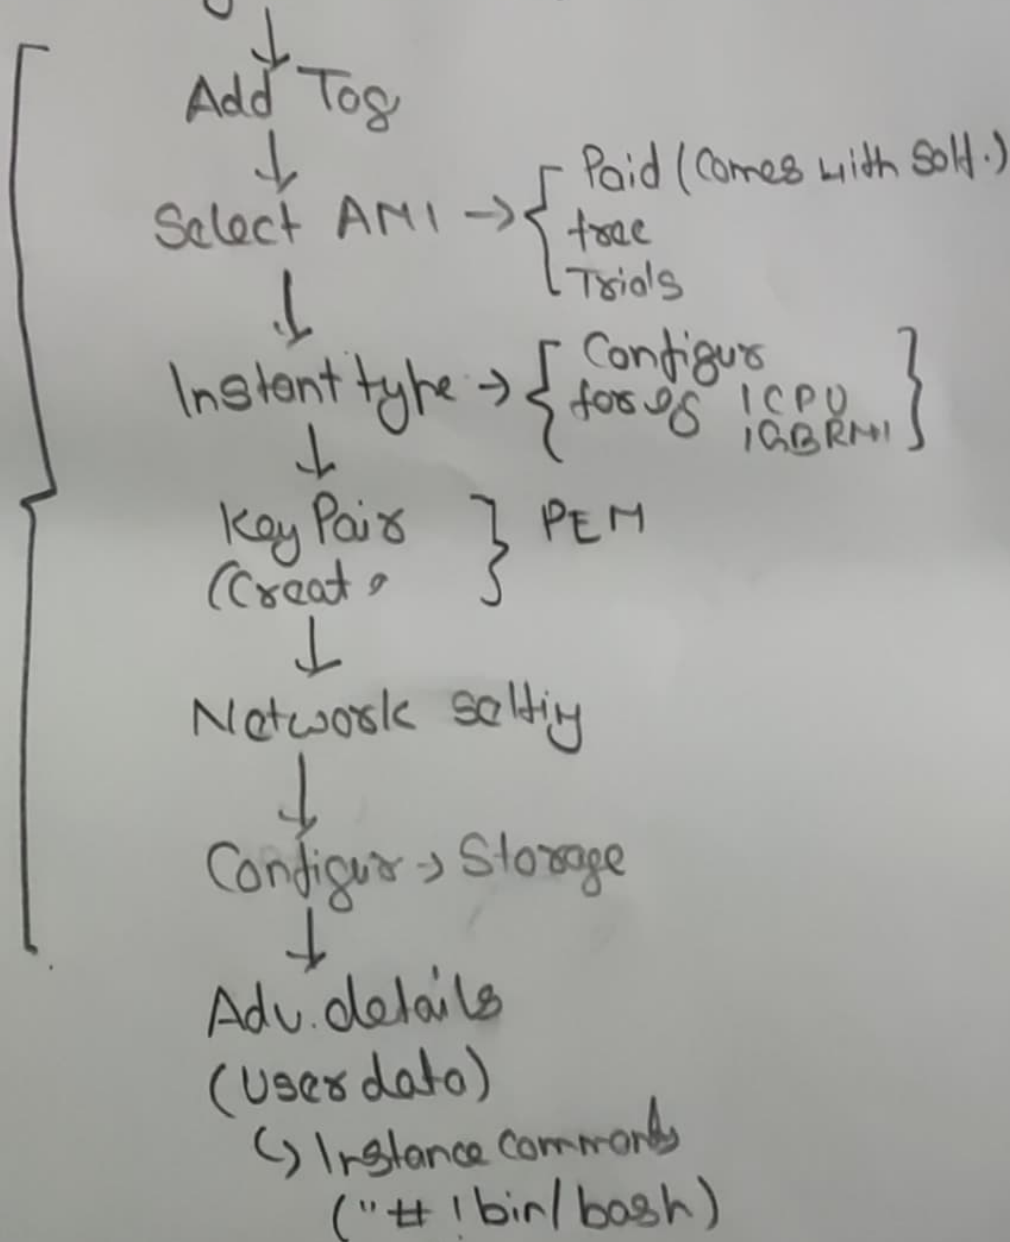 Add Tag
Select AMI → { Paid (Comes with Soft.)
free
Trials
Instant type → { Configur
for eg 1CPU
1GB RAM }
Key Pair } PEM
(Creat
Network setting
Configur → Storage
Adv. details
(User data)
↳ Instance commands
("#!bin/bash)